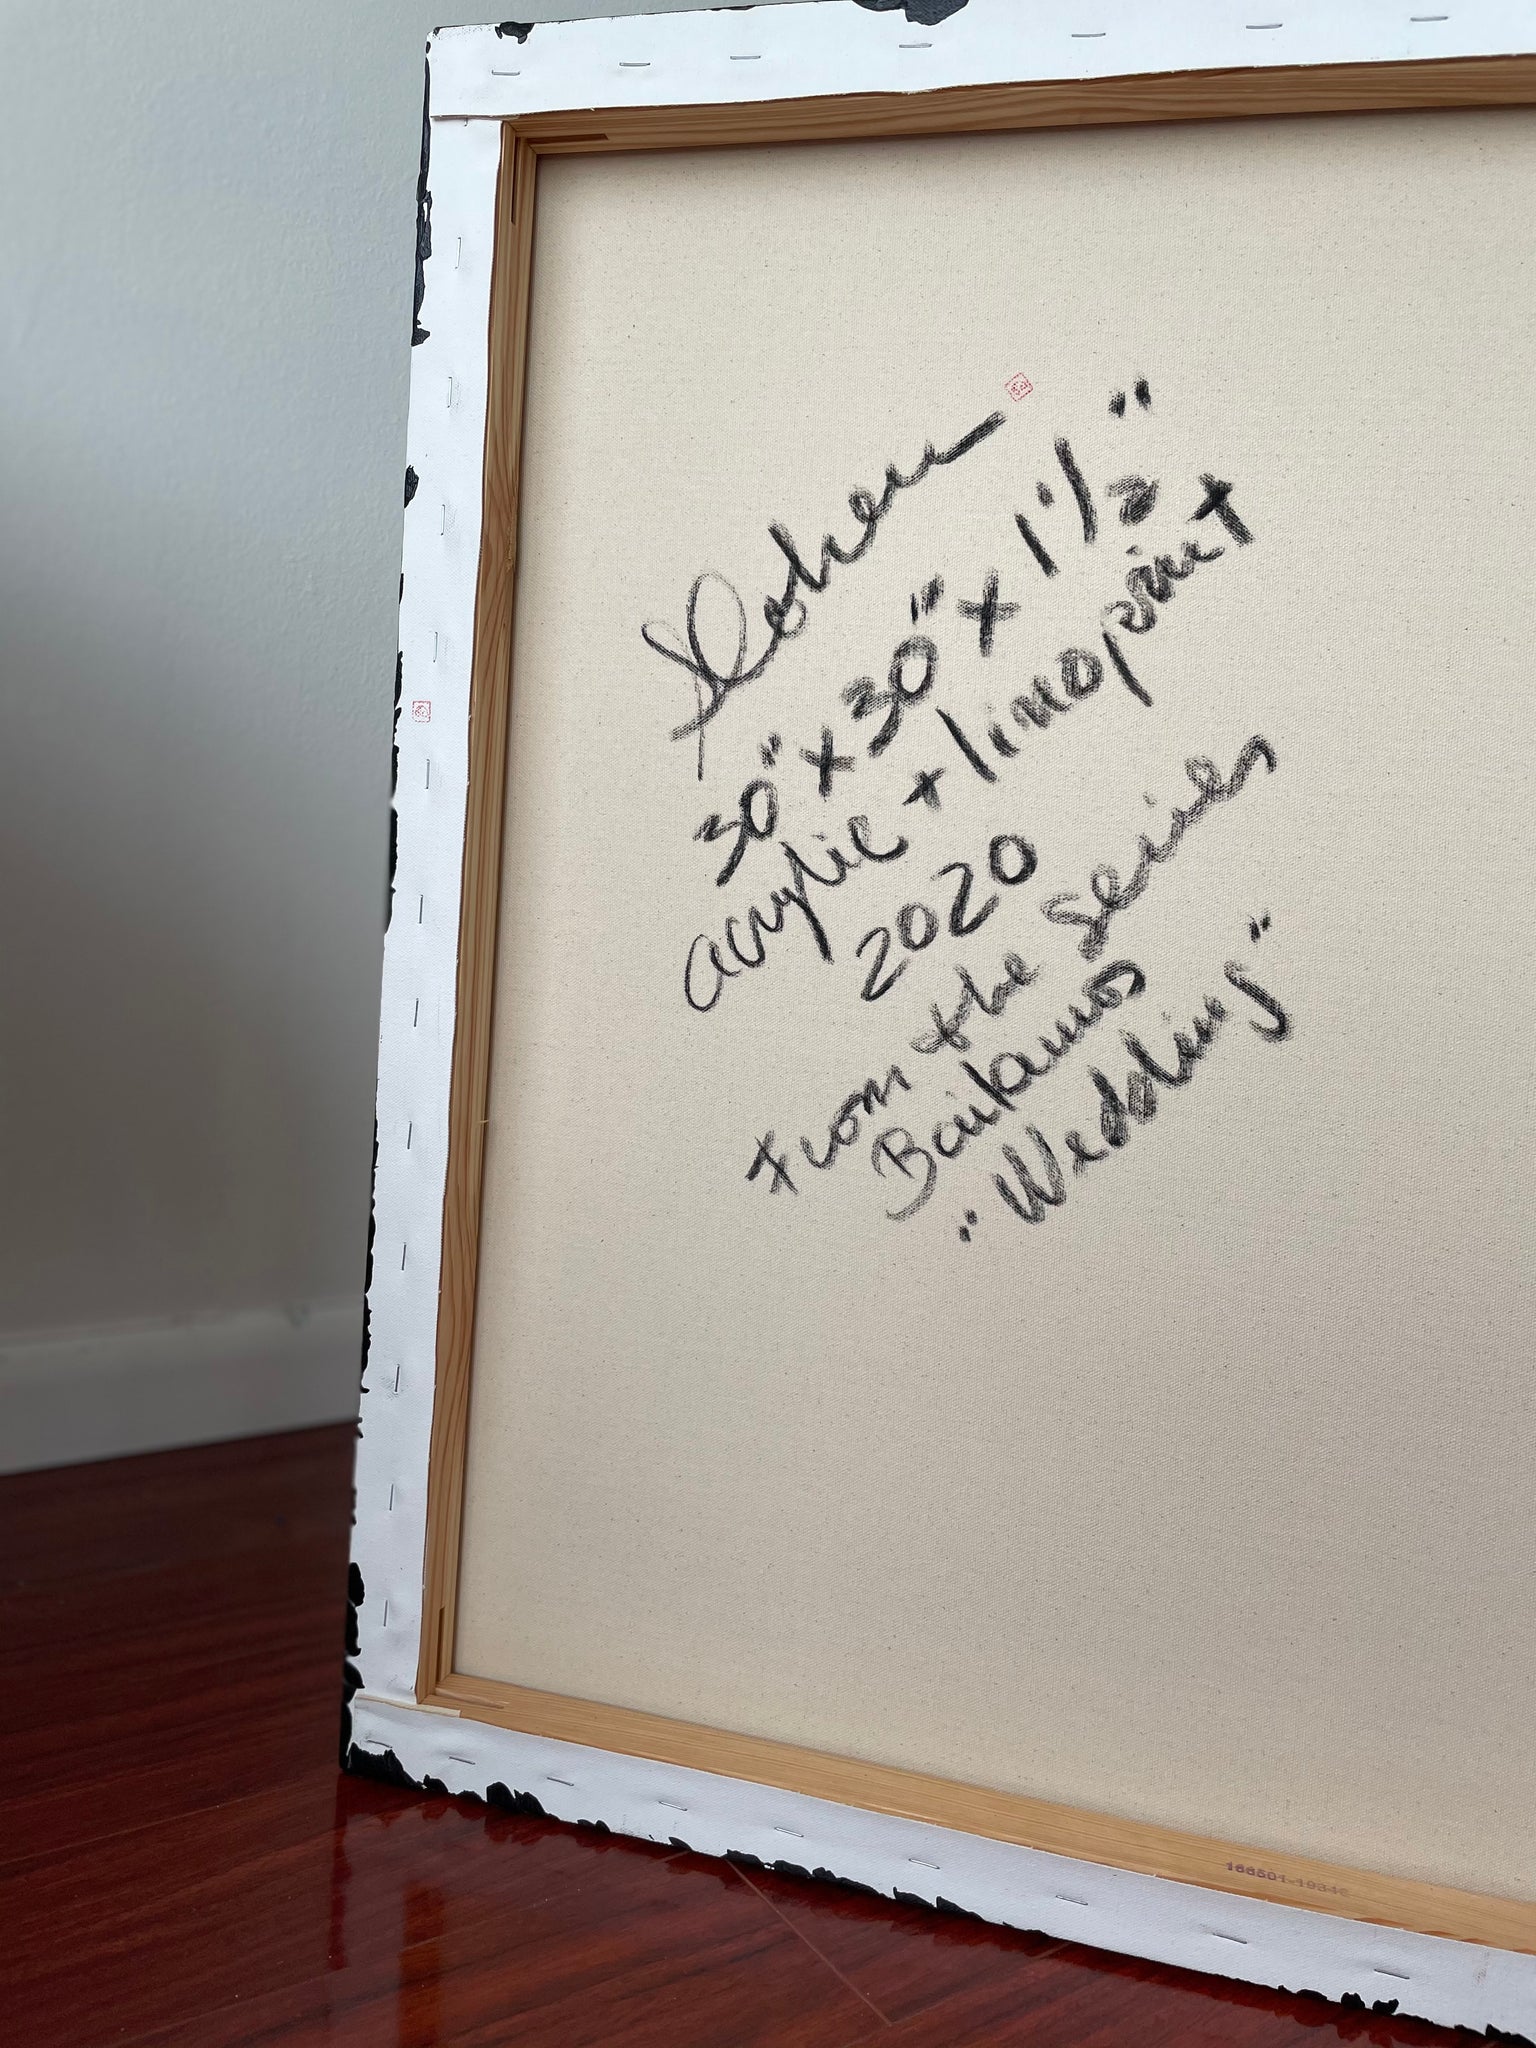 30" x 30" x 1 1/2"
acrylic + linoprint
2020
From the series
Bailamos
"Wedding"
166501-19346